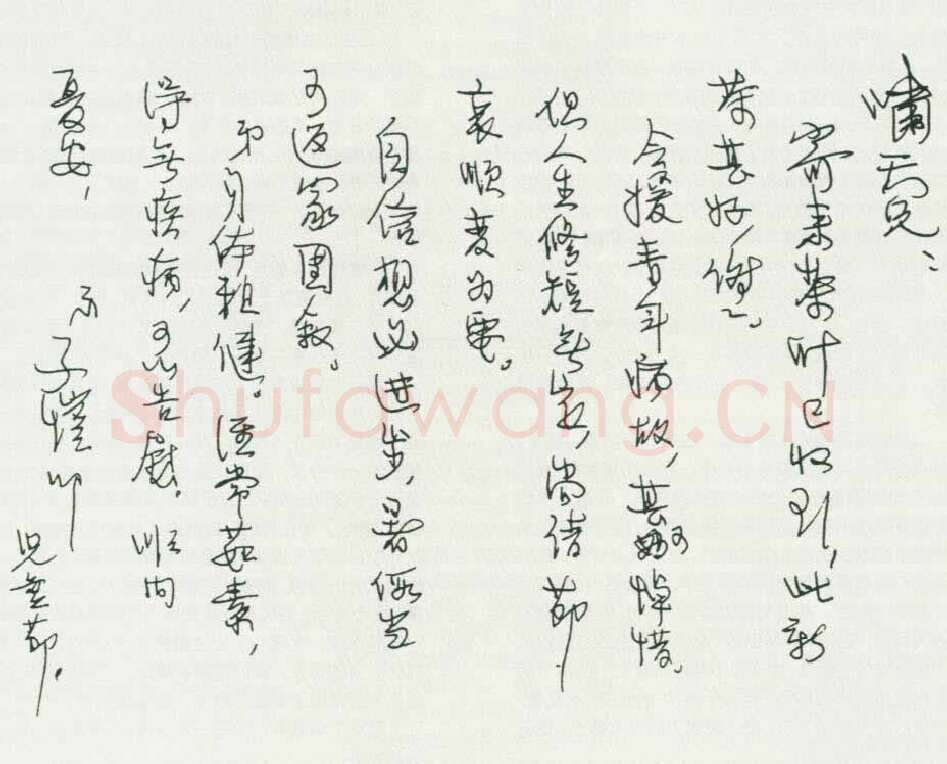 啸云兄：
寄来紫叶已收到，此新
茶甚好，谢谢。
令媛青年病故，甚可悼惜。
但人生修短无定，尚请节
哀顺变为要。
自信想必进步，暑假当
可返家团叙。
弟身体粗健。经常茹素，
得无疾病，可以告慰。顺问
夏安，
弟 子恺 叩
儿童节，
Shufawang.CN